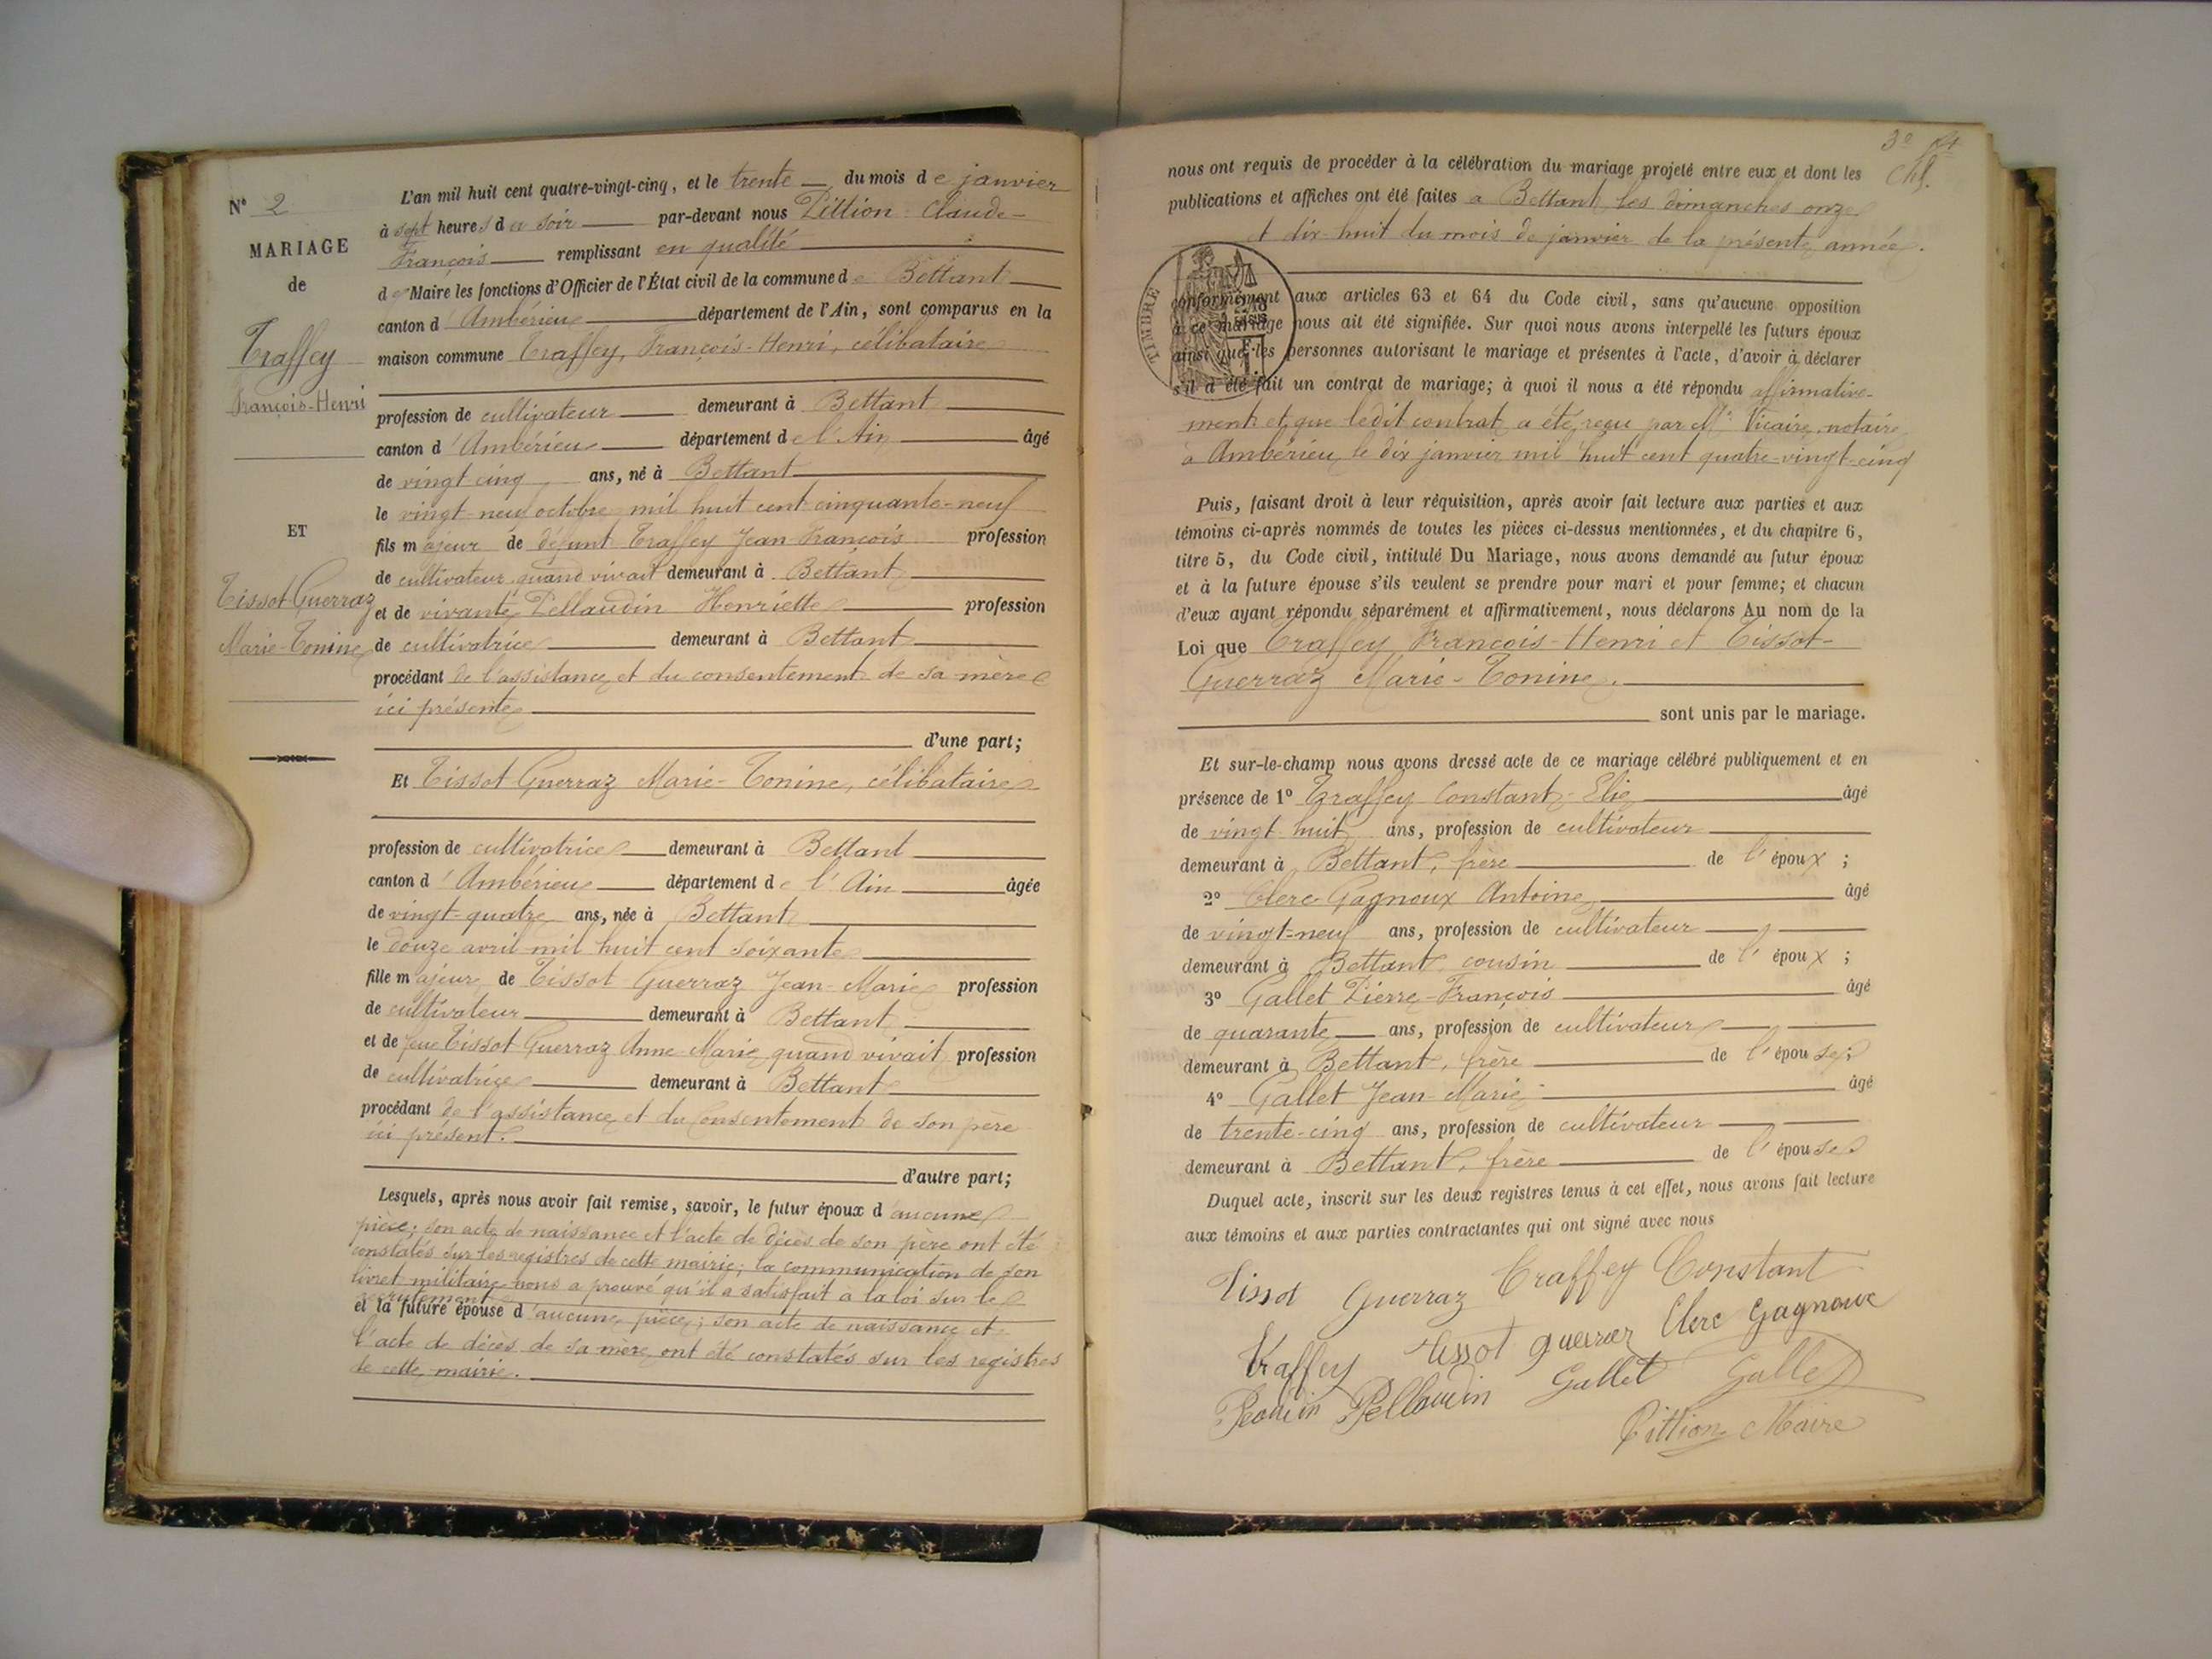 N° 2
MARIAGE
de
Traffey
François-Henri
ET
Tissot-Guerraz
Marie-Tonine
L'an mil huit cent quatre-vingt-cinq, et le trente du mois de janvier
à sept heures du soir par-devant nous Pittion Claude-
François remplissant en qualité
de Maire les fonctions d'Officier de l'État civil de la commune de Bettant
canton d'Ambérieu département de l'Ain, sont comparus en la
maison commune Traffey, François-Henri, célibataire
profession de cultivateur demeurant à Bettant
canton d'Ambérieu département de l'Ain âgé
de vingt-cinq ans, né à Bettant
le vingt-neuf octobre mil huit cent cinquante-neuf
fils majeur de défunt Traffey Jean-François profession
de cultivateur quand vivait demeurant à Bettant
et de vivante Pellaudin Henriette profession
de cultivatrice demeurant à Bettant
procédant de l'assistance et du consentement de sa mère
ici présente
d'une part;
Et Tissot-Guerraz Marie-Tonine, célibataire
profession de cultivatrice demeurant à Bettant
canton d'Ambérieu département de l'Ain âgée
de vingt-quatre ans, née à Bettant
le douze avril mil huit cent soixante
fille majeure de Tissot Guerraz Jean-Marie profession
de cultivateur demeurant à Bettant
et de feue Tissot-Guerraz Anne-Marie quand vivait profession
de cultivatrice demeurant à Bettant
procédant de l'assistance et du consentement de son père
ici présent.
d'autre part;
Lesquels, après nous avoir fait remise, savoir, le futur époux d'aucune
pièce; son acte de naissance et l'acte de décès de son père ont été
constatés sur les registres de cette mairie; la communication de son
livret militaire nous a prouvé qu'il a satisfait à la loi sur le
recrutement
et la future épouse d'aucune pièce; son acte de naissance et
l'acte de décès de sa mère ont été constatés sur les registres
de cette mairie.
3e
nous ont requis de procéder à la célébration du mariage projeté entre eux et dont les
publications et affiches ont été faites à Bettant les dimanches onze
et dix-huit du mois de janvier de la présente année.
TIMBRE
conformément aux articles 63 et 64 du Code civil, sans qu'aucune opposition
à ce mariage nous ait été signifiée. Sur quoi nous avons interpellé les futurs époux
ainsi que les personnes autorisant le mariage et présentes à l'acte, d'avoir à déclarer
s'il a été fait un contrat de mariage; à quoi il nous a été répondu affirmative-
ment et que ledit contrat a été reçu par Me Vicaire, notaire
à Ambérieu, le dix janvier mil huit cent quatre-vingt-cinq
Puis, faisant droit à leur réquisition, après avoir fait lecture aux parties et aux
témoins ci-après nommés de toutes les pièces ci-dessus mentionnées, et du chapitre 6,
titre 5, du Code civil, intitulé Du Mariage, nous avons demandé au futur époux
et à la future épouse s'ils veulent se prendre pour mari et pour femme; et chacun
d'eux ayant répondu séparément et affirmativement, nous déclarons Au nom de la
Loi que Traffey François-Henri et Tissot-
Guerraz Marie-Tonine.
sont unis par le mariage.
Et sur-le-champ nous avons dressé acte de ce mariage célébré publiquement et en
présence de 1° Traffey Constant-Elie âgé
de vingt-huit ans, profession de cultivateur
demeurant à Bettant, frère de l'époux;
2° Clerc-Gagnoux Antoine âgé
de vingt-neuf ans, profession de cultivateur
demeurant à Bettant, cousin de l'époux;
3° Gallet Pierre-François âgé
de quarante ans, profession de cultivateur
demeurant à Bettant, frère de l'épouse;
4° Gallet Jean-Marie âgé
de trente-cinq ans, profession de cultivateur
demeurant à Bettant, frère de l'épouse
Duquel acte, inscrit sur les deux registres tenus à cet effet, nous avons fait lecture
aux témoins et aux parties contractantes qui ont signé avec nous
Tissot Guerraz Traffey Constant
Traffey Tissot guerraz Clerc Gagnoux
Pellaudin Gallet Gallet
Pittion Maire